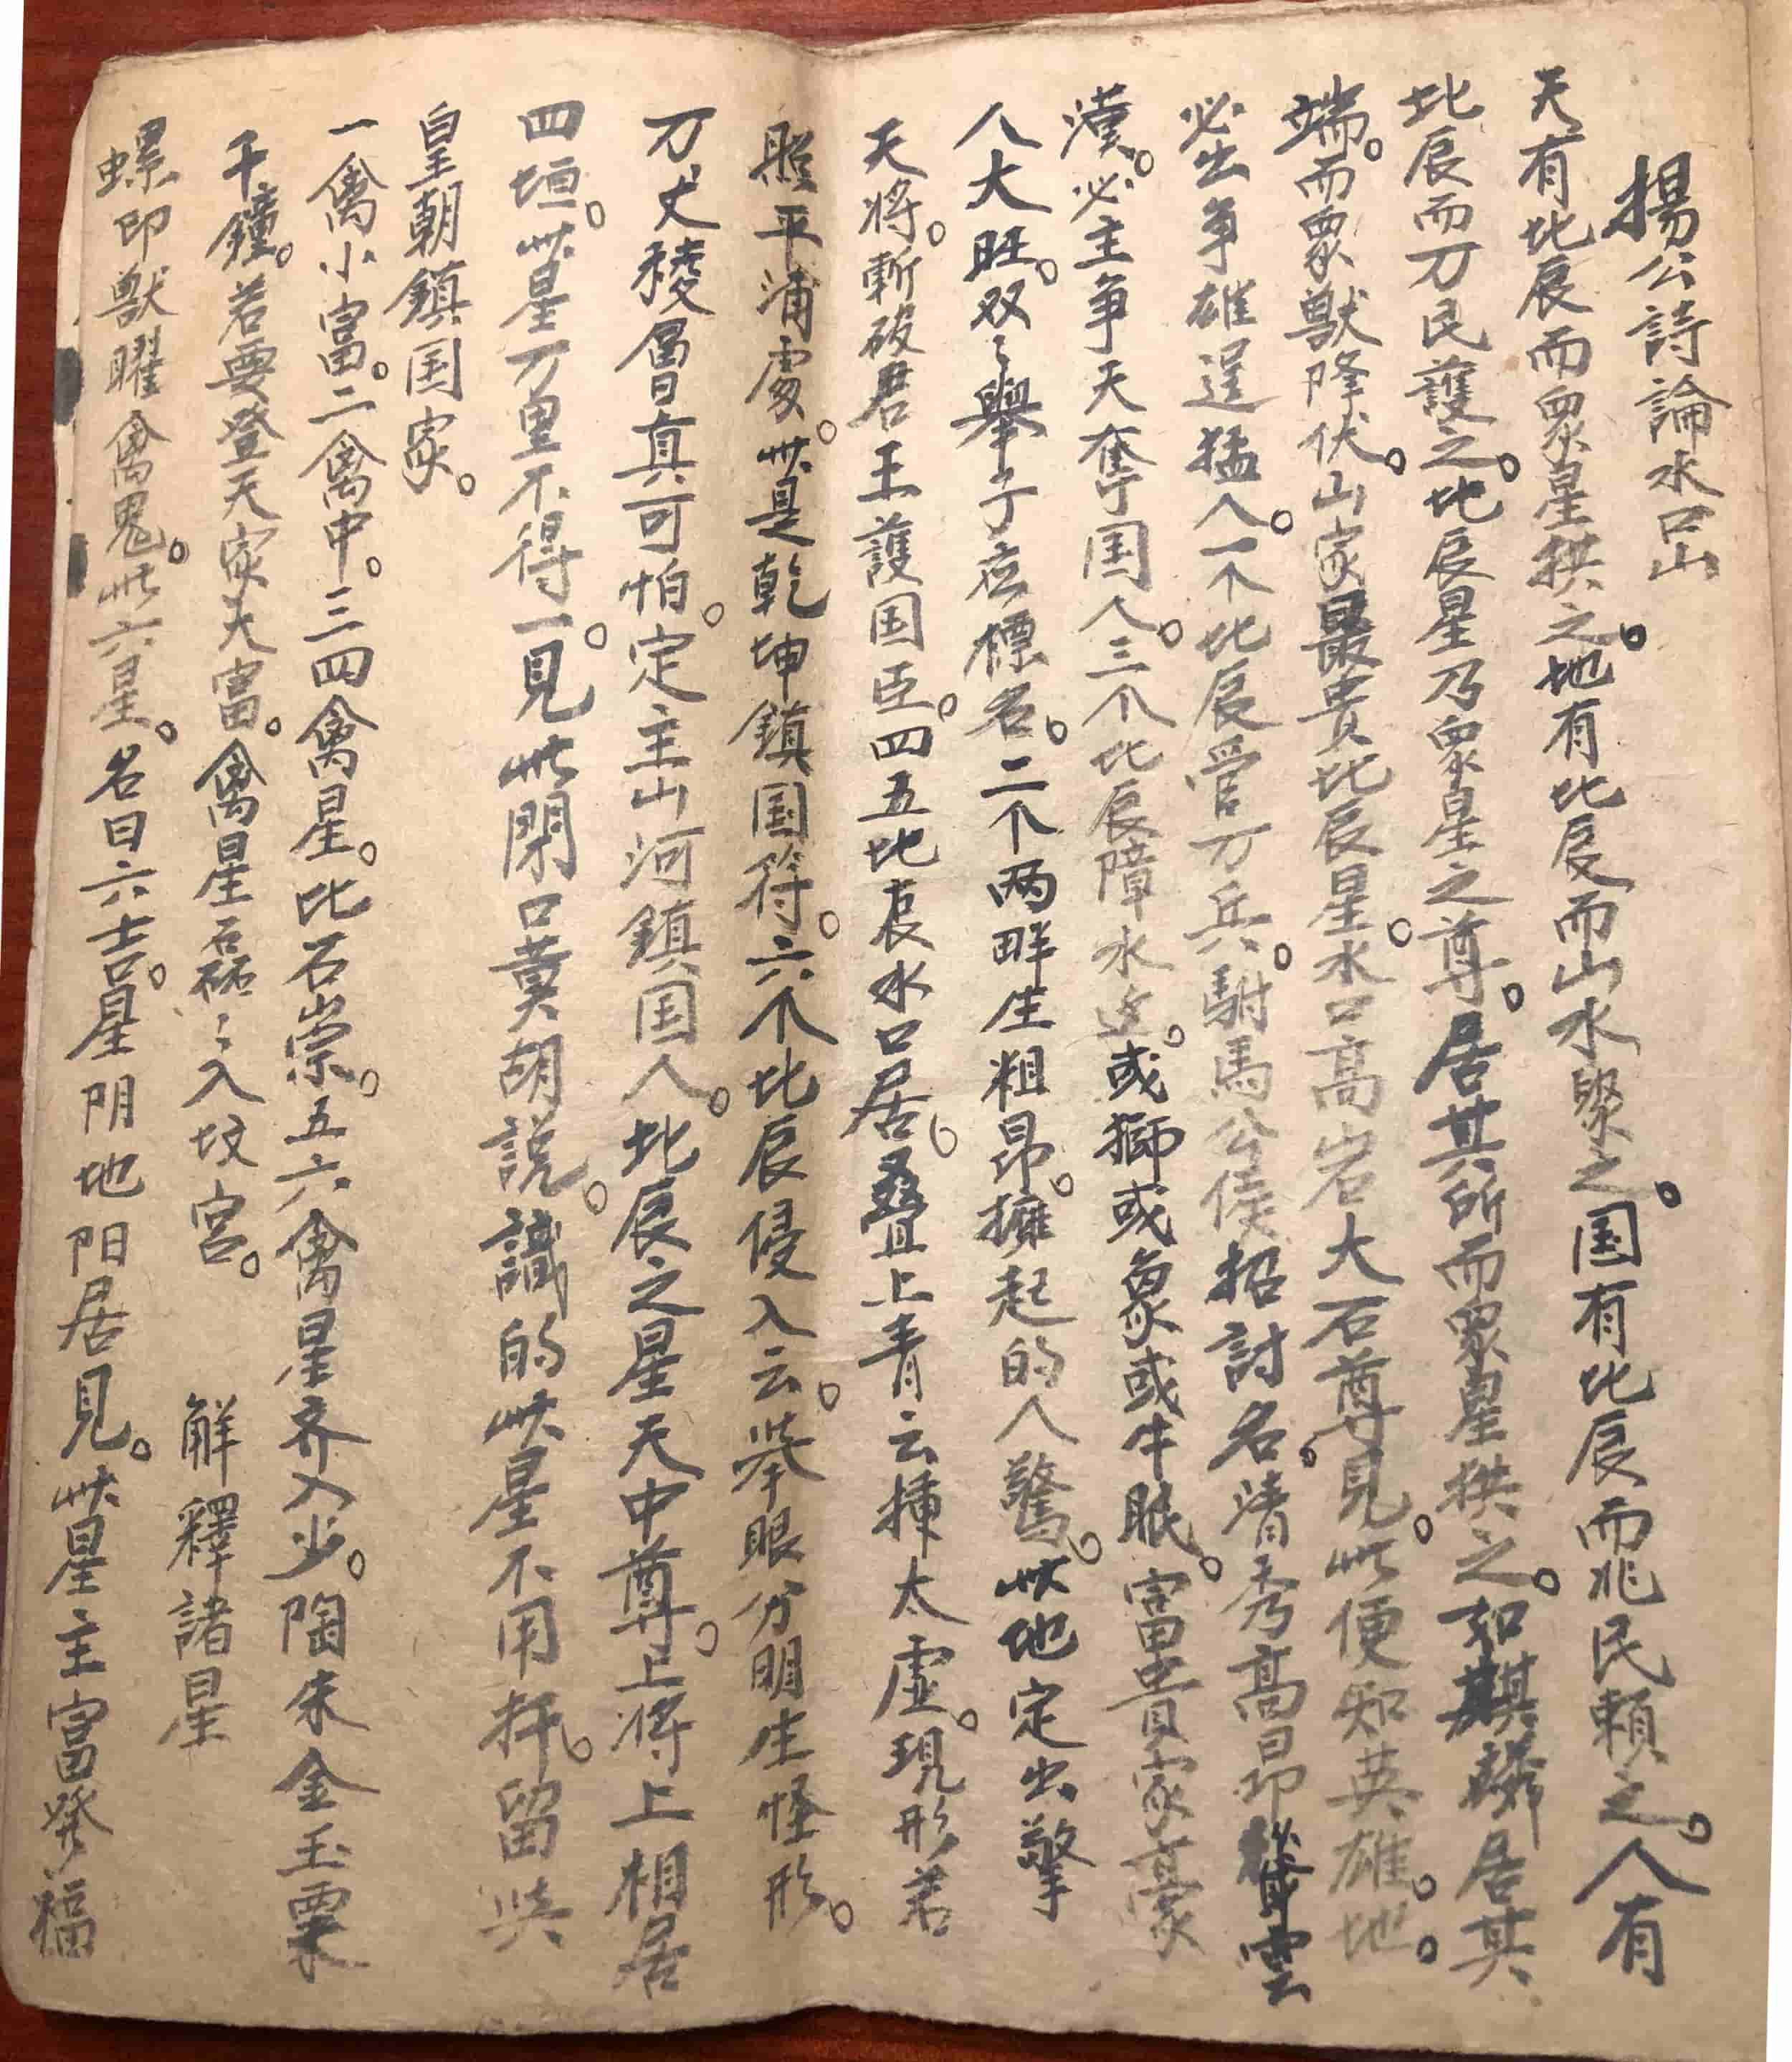 楊公詩論水口山
天有北辰而眾星拱之。地有北辰而山水聚之。国有北辰而兆民賴之。人有
北辰而万民護之。北辰星乃眾星之尊。居其所而眾星拱之。如麒麟居其
端。而眾獸降伏。山家最貴北辰星。水口高岩大石尊。見此便知英雄地。
必出争雄逞猛人。一个北辰管万兵。駙馬公侯招討名。清秀高昂聳雲
漢。必主争天奪国人。三个北辰障水。或獅或象或牛眠。富貴家豪
人大旺。双〻舉子在標名。二个两畔生粗昂。擁起的人驚。此地定出擎
天将。斬破君王護国臣。四五北辰水口居。叠上青云揷太虛。現形若
照平浦處。此是乾坤鎮国符。六个北辰侵入云。举眼分明生怪形。
万丈稜曾真可怕。定主山河鎮国人。北辰之星天中尊。上将上相居
四垣。此星万里不得一。見此閉口莫胡説。識的此星不用扦。留與
皇朝鎮国家。
一禽小富。二禽中。三四禽星。比石崇。五六禽星齐入少。陶朱金玉粟
千鐘。若要登天家大富。禽星石〻入坟宮。 解釋諸星
螺印獸曜禽鬼。此六星。名曰六吉。星阴地阳居見。此星主富発福